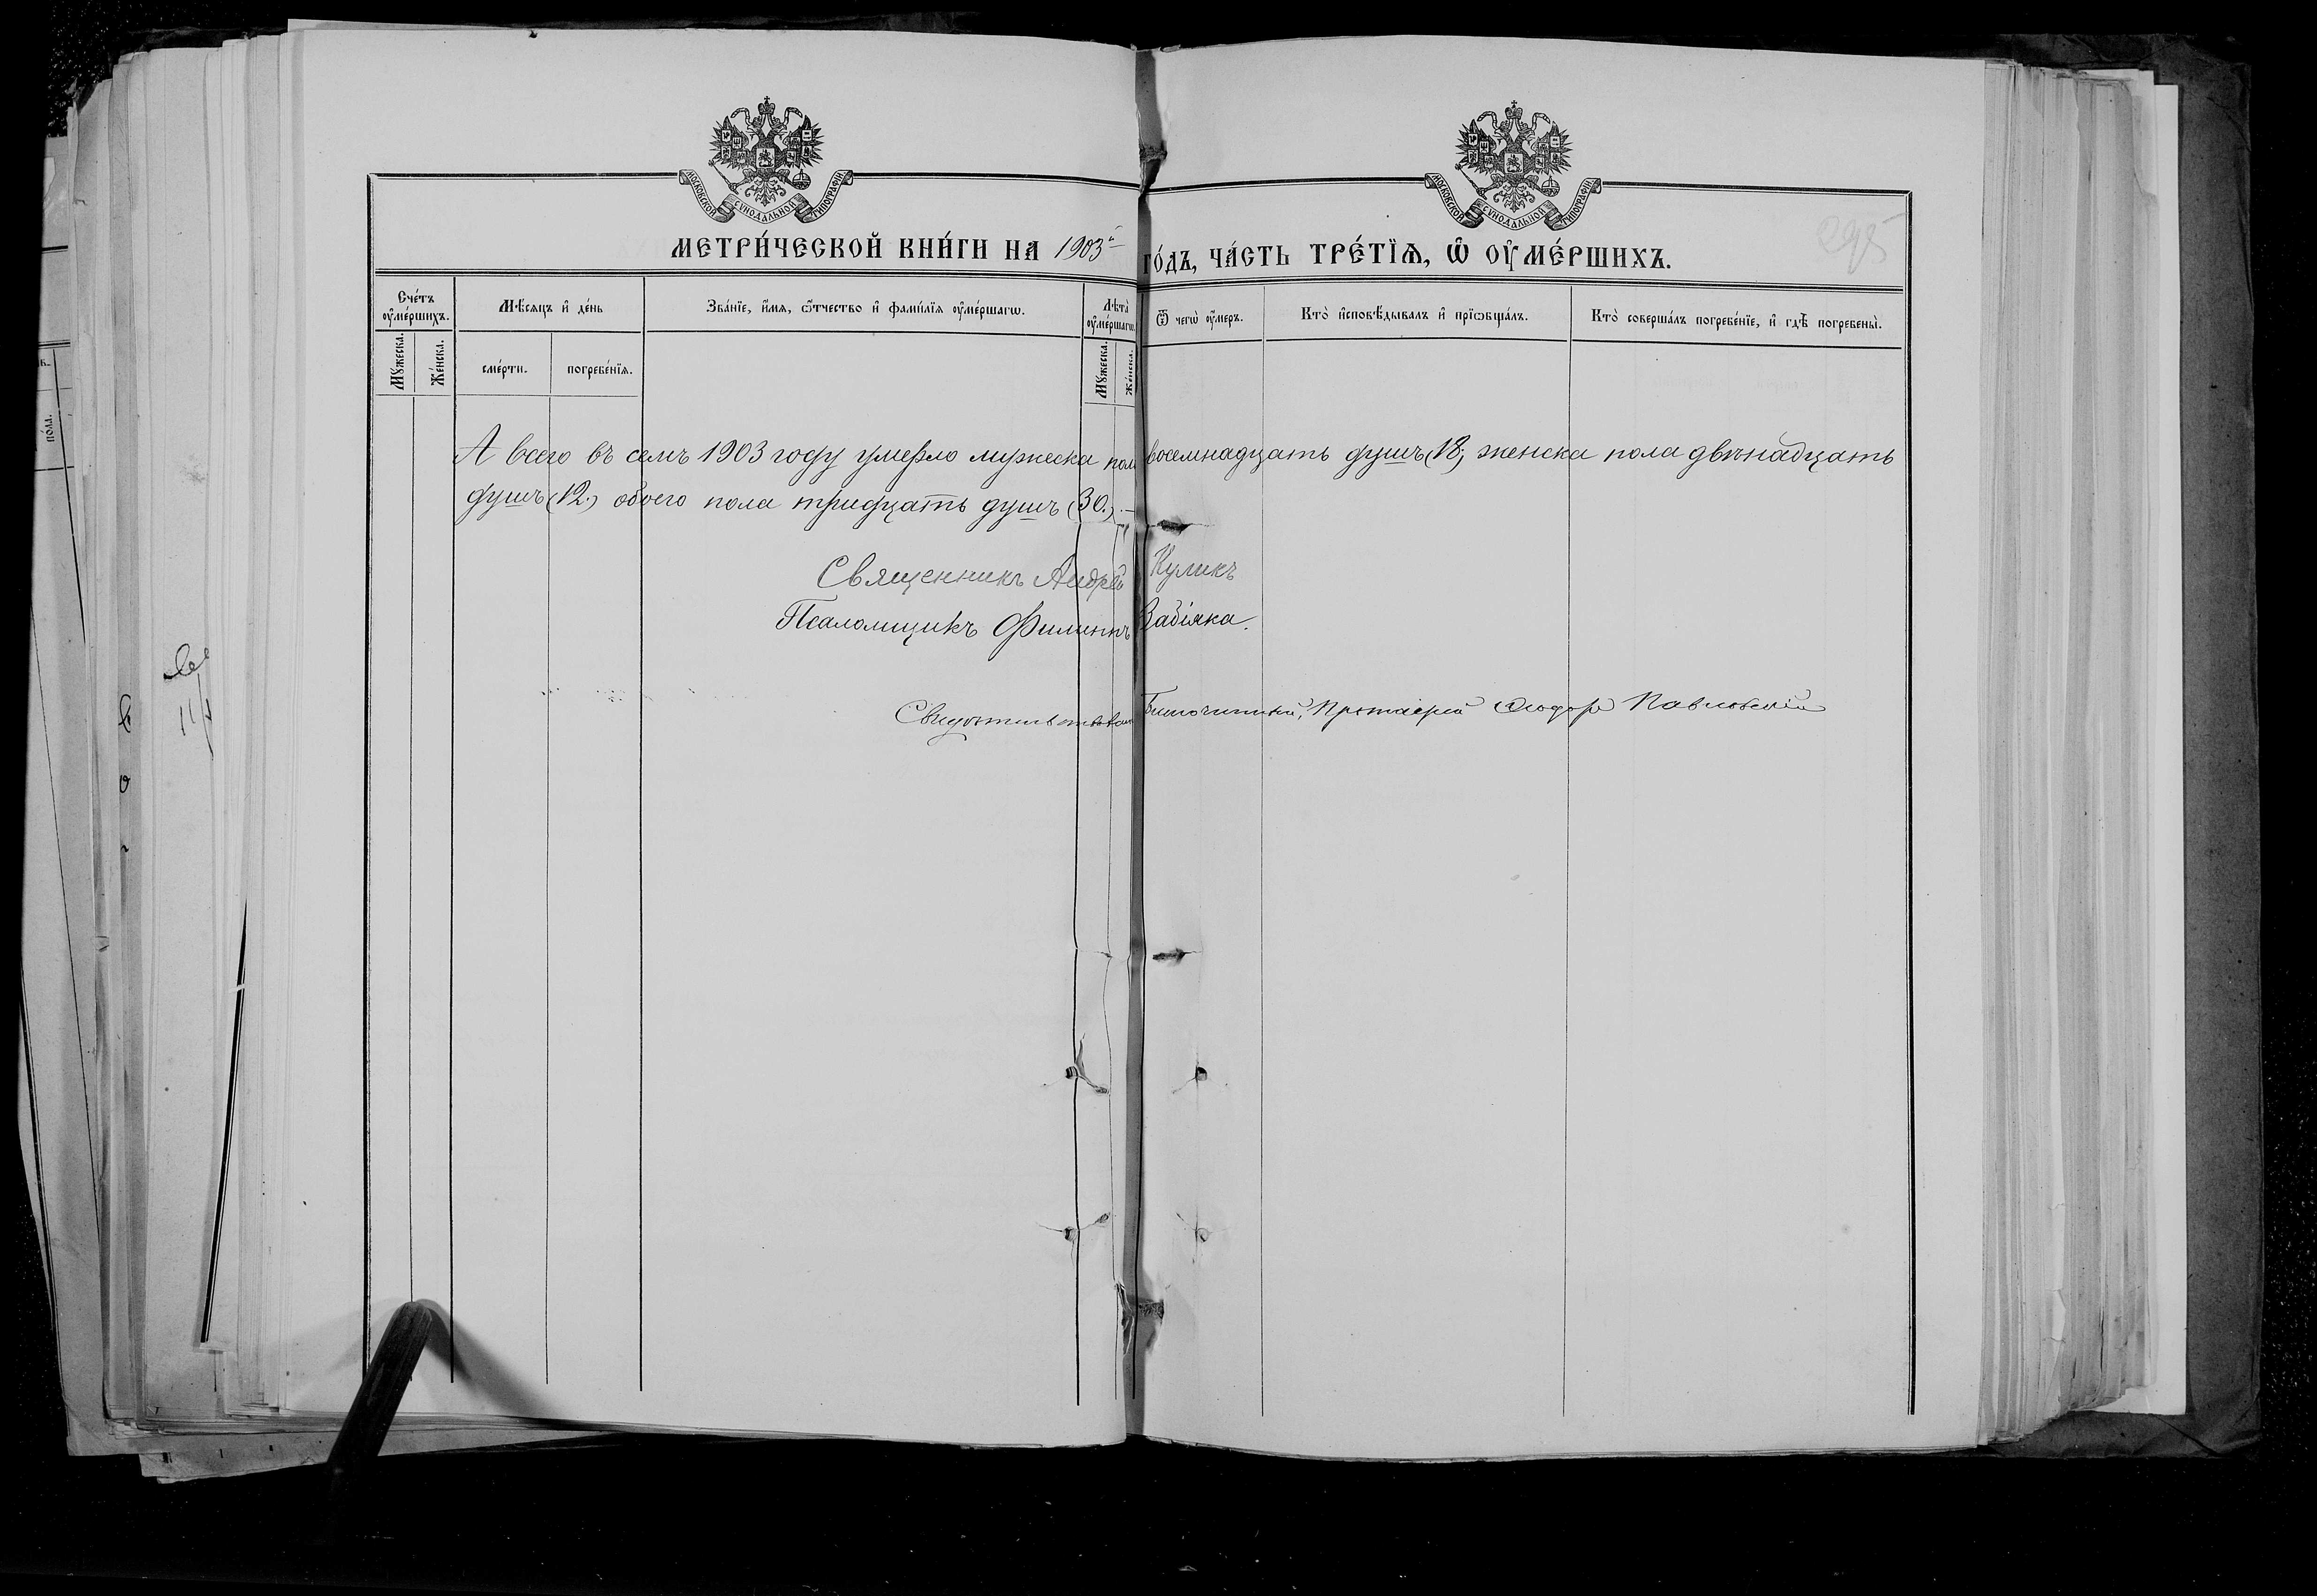 МОСКОВСКОЙ СѴНОДАЛЬНОЙ ТИПОГРАФІИ
МОСКОВСКОЙ СѴНОДАЛЬНОЙ ТИПОГРАФІИ
МЕТРИ́ЧЕСКОЙ КНИ́ГИ НА 1903й ГО́ДЪ, ЧА́СТЬ ТРЕ́ТЇѦ, Ѡ҆ ОУ҆МЕ́РШИХЪ.
295
Сче́тъ оу҆ме́ршихъ.
Мꙋ́жеска.
Же́нска.
Мѣ́сяцъ и҆ де́нь
сме́рти.
погребе́нїѧ.
Зва́нїе, и҆́мѧ, ѻ҆́тчество и҆ фами́лїѧ оу҆ме́ршагѡ.
Лѣ́та оу҆ме́ршагѡ.
Мꙋ́жеска.
Же́нска.
Ѿ чегѡ̀ оу҆́меръ.
Кто̀ и҆сповѣ́дывалъ и҆ прїѡбща́лъ.
Кто̀ соверша́лъ погребе́нїе, и҆ гдѣ̀ погребены̀.
А всего въ семъ 1903 году умерло мужеска пола восемнадцать душъ (18; женска пола двѣнадцать
душъ (12.) обоего пола тридцать душъ (30.).—
Священникъ Андрей Куликъ
Псаломщикъ Филиппъ Забіяка.
Свидѣтельствовалъ Благочинный, Протоіерей Ѳеодоръ Павловскій
пола.